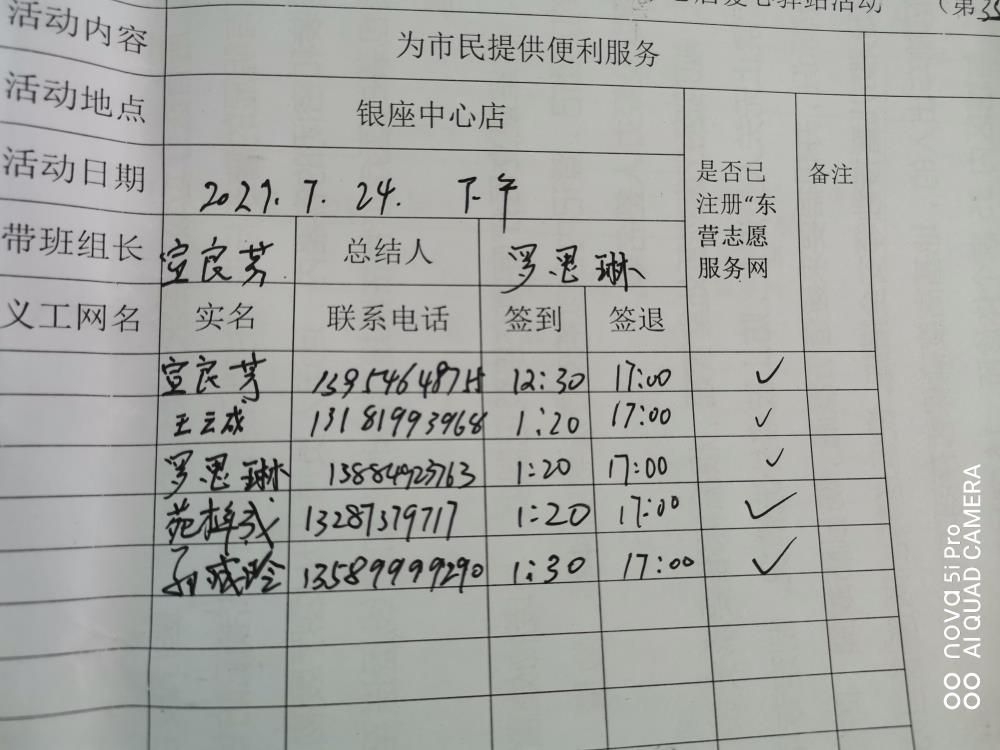 爱心驿站活动 （第35
活动内容 为市民提供便利服务
活动地点 银座中心店
活动日期 2021.7.24. 下午
是否已注册“东营志愿服务网
备注
带班组长 宣良芳 总结人 罗思琳
义工网名 实名 联系电话 签到 签退
宣良芳 12:30 17:00 ✓
王云成 13181993968 1:20 17:00 ✓
罗思琳 13884923763 1:20 17:00 ✓
苑梓成 13287379717 1:20 17:00 ✓
13589999290 1:30 17:00 ✓
nova 5i Pro
AI QUAD CAMERA